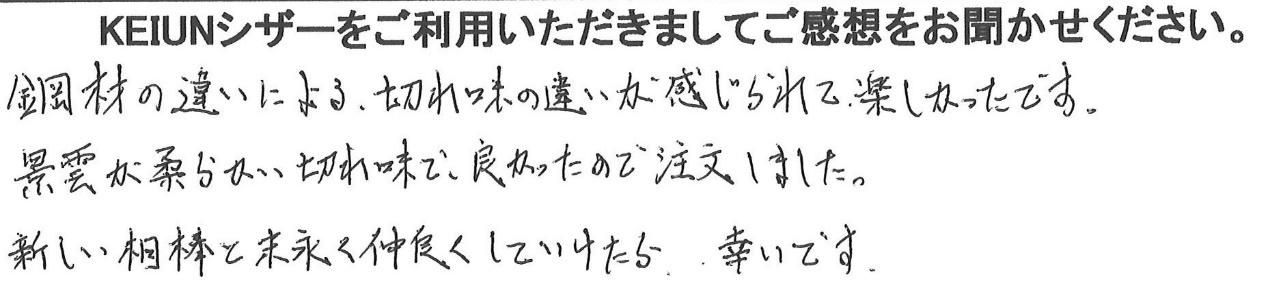 KEIUNシザーをご利用いただきましてご感想をお聞かせください。
鋼材の違いによる、切れ味の違いが感じられて、楽しかったです。
景雲が柔らかい切れ味で、良かったので注文しました。
新しい相棒と末永く仲良くしていけたら、幸いです。